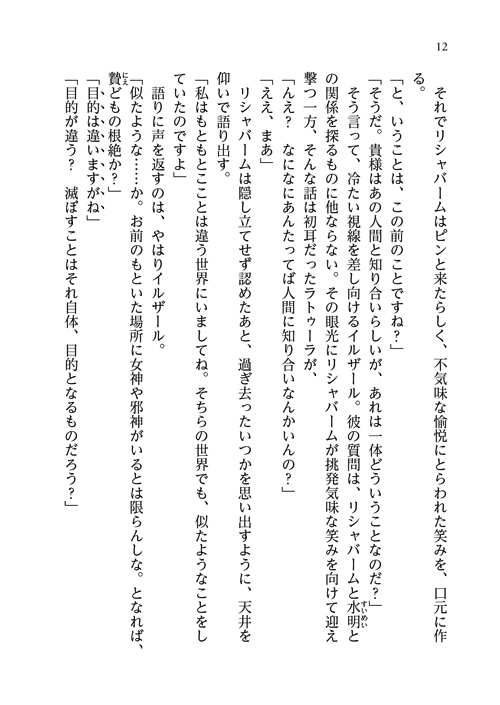 12
それでリシャバームはピンと来たらしく、不気味な愉悦にとらわれた笑みを、口元に作
る。
「と、いうことは、この前のことですね？」
「そうだ。貴様はあの人間と知り合いらしいが、あれは一体どういうことなのだ？」
そう言って、冷たい視線を差し向けるイルザール。彼の質問は、リシャバームと水明と
すいめい
の関係を探るものに他ならない。その眼光にリシャバームが挑発気味な笑みを向けて迎え
撃つ一方、そんな話は初耳だったラトゥーラが、
「んえ？　なになにあんたってば人間に知り合いなんかいんの？」
「ええ、まあ」
リシャバームは隠し立てせず認めたあと、過ぎ去ったいつかを思い出すように、天井を
仰いで語り出す。
「私はもともとこことは違う世界にいましてね。そちらの世界でも、似たようなことをし
ていたのですよ」
語りに声を返すのは、やはりイルザール。
「似たような……か。お前のもといた場所に女神や邪神がいるとは限らんしな。となれば、
贄どもの根絶か？」
にえ
「目的は違いますがね」
「目的が違う？　滅ぼすことはそれ自体、目的となるものだろう？」